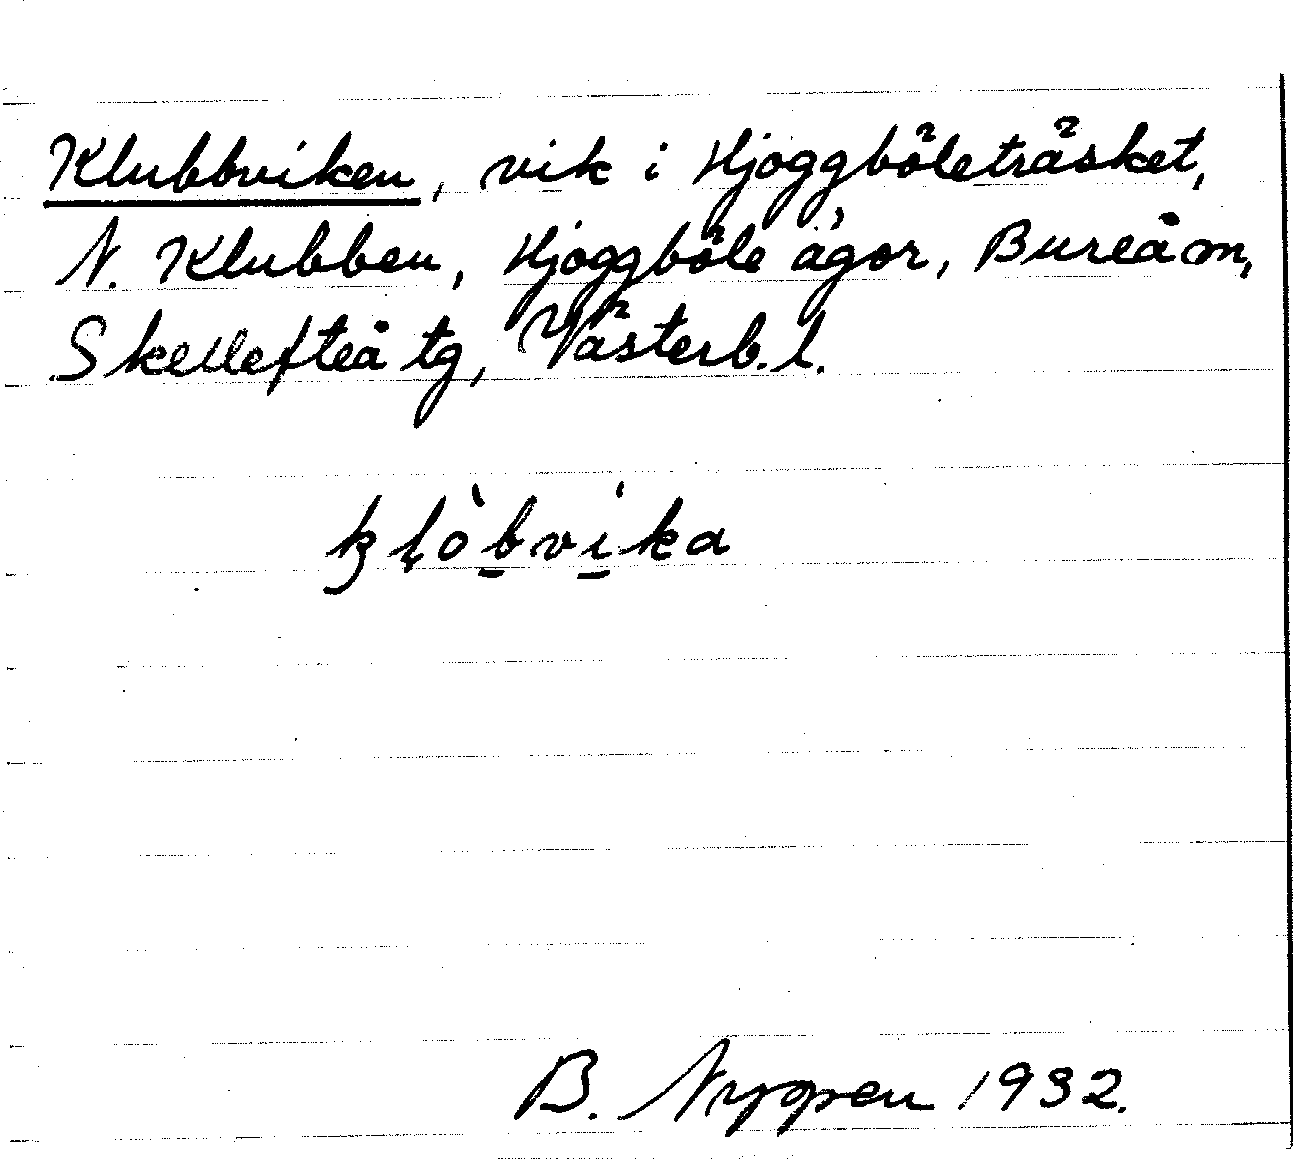 Klubbviken, vik i Hjoggböleträsket,
N. Klubben, Hjoggböle ägor, Bureå m,
Skellefteå tg, Västerb. l.
kḷòb̲vi̲ka
B. Nygren 1932.